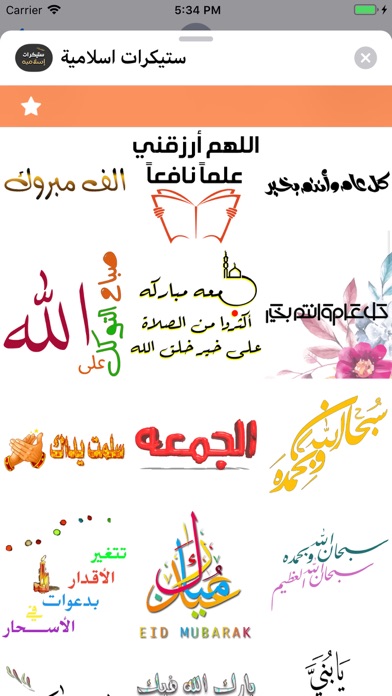 Carrier 5:34 PM
ستيكرات اسلامية
ستيكرات
إسلاميه
الف مبروك
اللهم أرزقني
علماً نافعاً
كل عام وأنتم بخير
صباح التوكل
على
الله
جمعه مباركه
اكثروا من الصلاة
على خير خلق الله
كل عام وانتم بخير
سلمت يداك
الجمعه
سبحان الله
وبحمده
تتغير
الأقدار
بدعوات
في
الأسحار
عيد مبارك
EID MUBARAK
سبحان الله وبحمده
سبحان الله العظيم
بارك الله فيك
يا بني